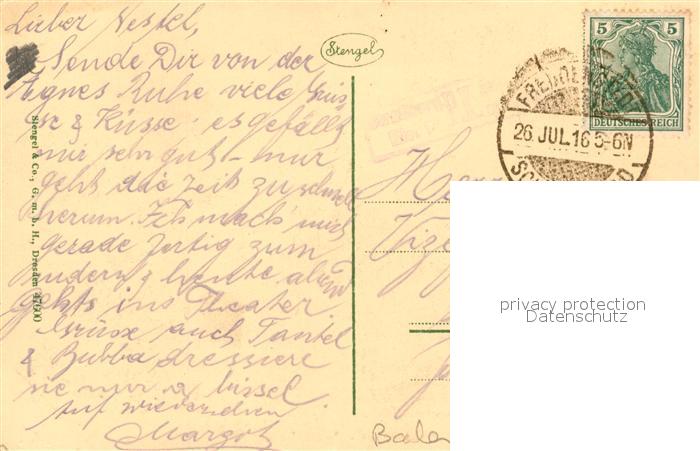 Lieber Nestel,
Sende Dir von der
Agnes Ruhe viele Grüs-
se & Küsse. es gefällt
mir sehr gut – nur
geht die Zeit zu schnell
herum. Ich mach' mich
gerade fertig zum
& heute abend
gehts ins Theater.
Grüsse auch Tantel
& Bubba dressiere
sie nur a bissel.
Auf wiedersehen
Margot
Stengel & Co., G. m. b. H., Dresden 47600
Stengel
5 5
DEUTSCHES REICH
FREUDENSTADT
26 JUL.16 5-6N
Herr
Vize
privacy protection
Datenschutz